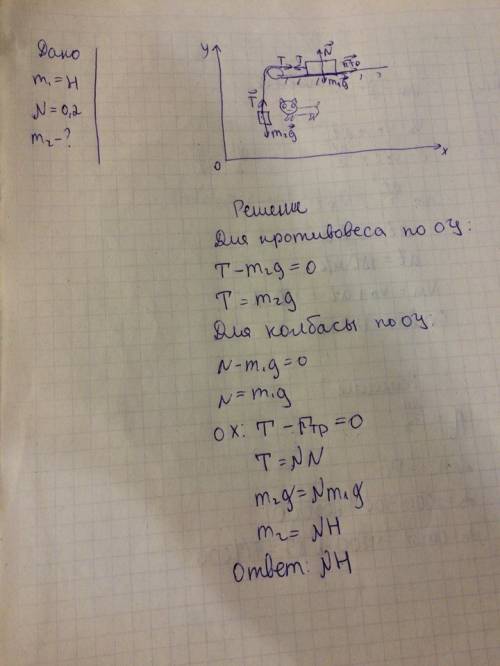 Дано
m₁ = H
N = 0,2
m₂ - ?
y
T T N Fтр
m₁g
T
m₂g
0 x
Решение
Для противовеса по OY:
T - m₂g = 0
T = m₂g
Для колбасы по OY:
N - m₁g = 0
N = m₁g
OX: T - Fтр = 0
T = NN
m₂g = Nm₁g
m₂ = NH
Ответ: NH